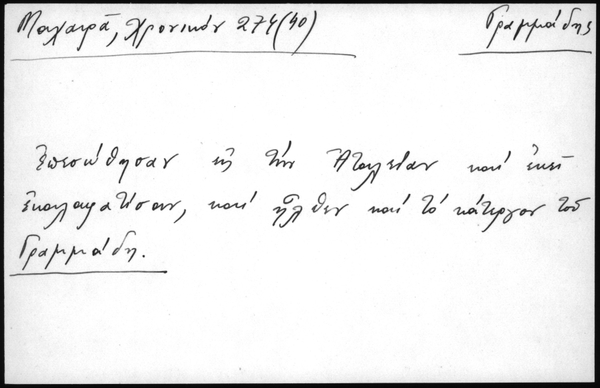 Μαχαιρᾶ, Χρονικόν 274(40) Γραμμάδης
ἐπεσώθησαν εἰς τὴν Ἀταλείαν καὶ ἐκεῖ
ἐκαλαφατίσαν, καὶ ἦλθεν καὶ τὸ κάτεργον τοῦ
Γραμμάδη.